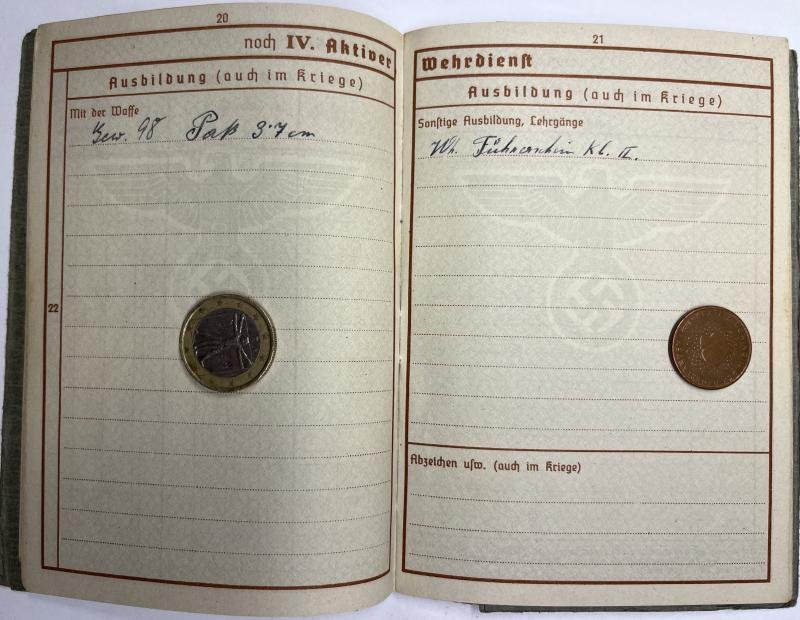 20
noch IV. Aktiver
Ausbildung (auch im Kriege)
Mit der Waffe
Gew. 98 Pak 3.7 cm
22
21
Wehrdienst
Ausbildung (auch im Kriege)
Sonstige Ausbildung, Lehrgänge
Wh. Führerschein Kl. II.
Abzeichen usw. (auch im Kriege)